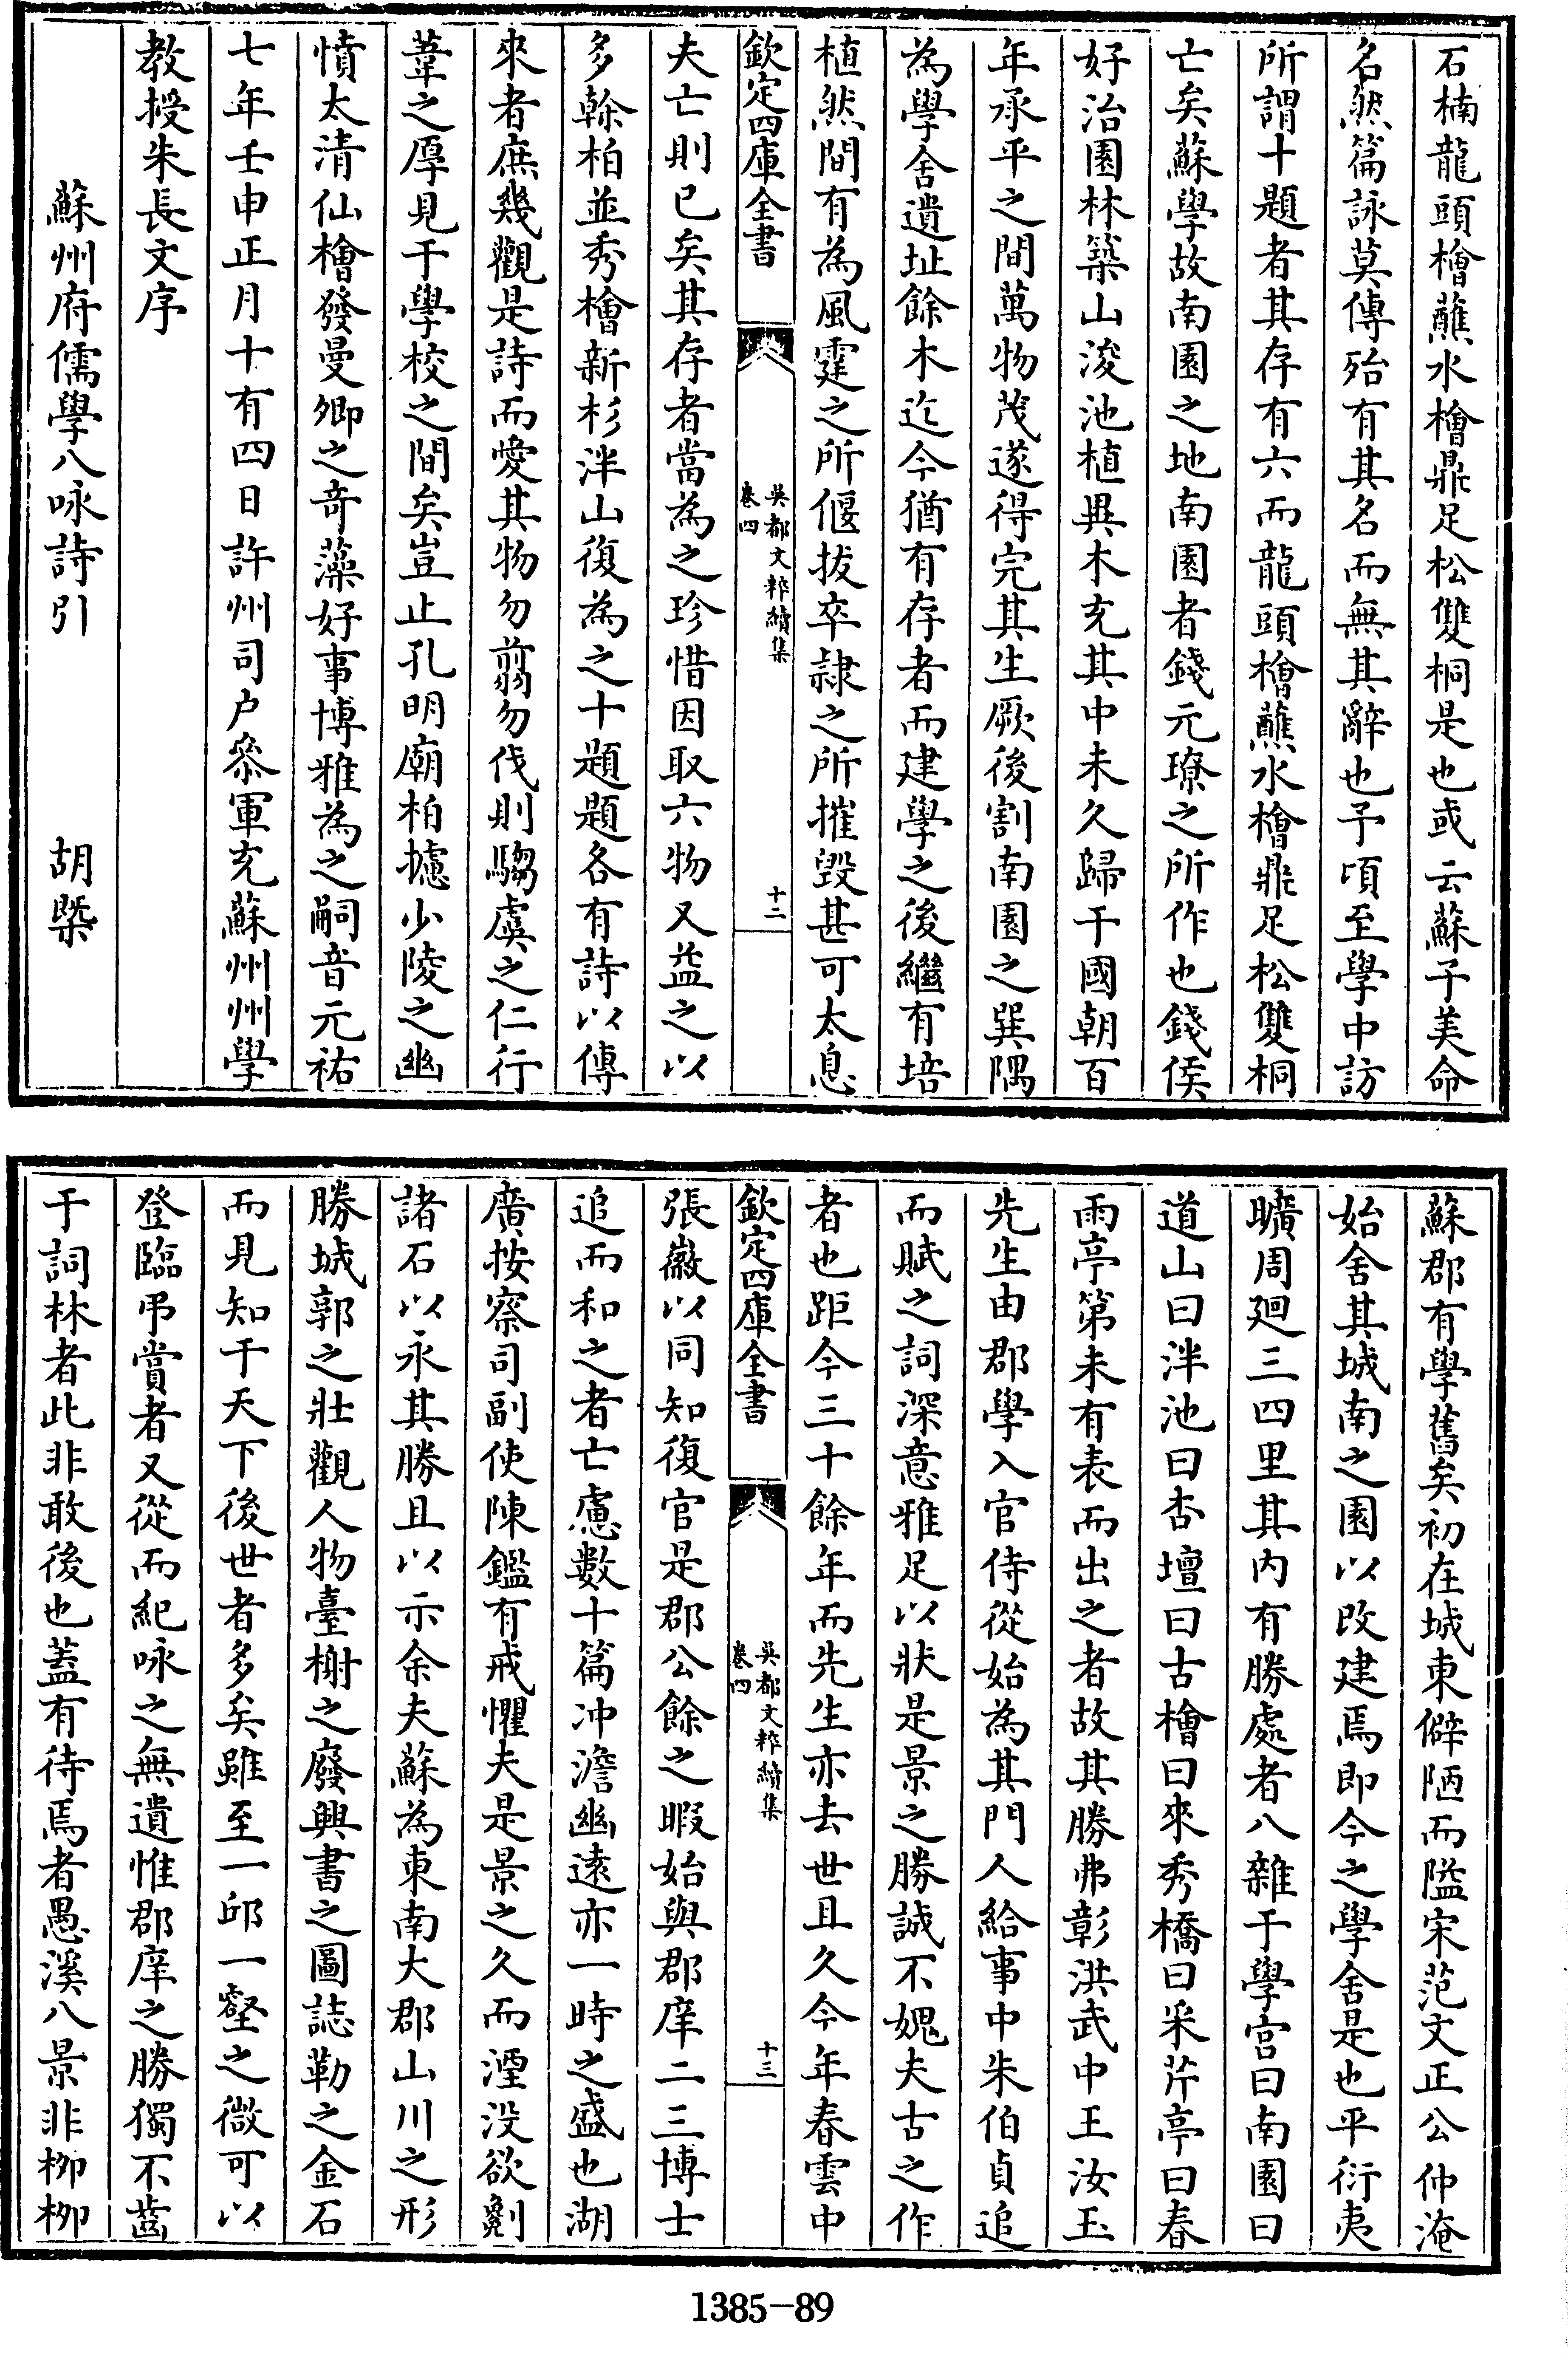 石楠龍頭檜蘸水檜鼎足松雙桐是也或云蘇子美命
名然篇詠莫傳殆有其名而無其辭也予頃至學中訪
所謂十題者其存有六而龍頭檜蘸水檜鼎足松雙桐
亡矣蘇學故南園之地南園者錢元璙之所作也錢侯
好治園林築山浚池植異木充其中未久歸于國朝百
年承平之間萬物茂遂得完其生厥後割南園之巽隅
為學舍遺址餘木迄今猶有存者而建學之後繼有培
植然間有為風霆之所偃拔卒隷之所摧毀甚可太息
欽定四庫全書
吳都文粹續集
卷四
十二
夫亡則已矣其存者當為之珍惜因取六物又益之以
多榦柏並秀檜新杉泮山復為之十題題各有詩以傳
來者庶幾觀是詩而愛其物勿翦勿伐則騶虞之仁行
葦之厚見于學校之間矣豈止孔明廟柏攄少陵之幽
憤太清仙檜發曼卿之奇藻好事博雅為之嗣音元祐
七年壬申正月十有四日許州司户叅軍充蘇州州學
教授朱長文序
蘇州府儒學八咏詩引 胡槩
蘇郡有學舊矣初在城東僻陋而隘宋范文正公仲淹
始舍其城南之園以改建焉即今之學舍是也平衍夷
曠周廻三四里其内有勝處者八雜于學宫曰南園曰
道山曰泮池曰杏壇曰古檜曰來秀橋曰采芹亭曰春
雨亭第未有表而出之者故其勝弗彰洪武中王汝玉
先生由郡學入官侍從始為其門人給事中朱伯貞追
而賦之詞深意雅足以狀是景之勝誠不媿夫古之作
者也距今三十餘年而先生亦去世且久今年春雲中
欽定四庫全書
吳都文粹續集
卷四
十三
張徽以同知復官是郡公餘之暇始與郡庠二三博士
追而和之者亡慮數十篇冲澹幽遠亦一時之盛也湖
廣按察司副使陳鑑有戒懼夫是景之久而湮没欲劖
諸石以永其勝且以示余夫蘇為東南大郡山川之形
勝城郭之壯觀人物臺榭之廢興書之圖誌勒之金石
而見知于天下後世者多矣雖至一邱一壑之微可以
登臨弔賞者又從而紀咏之無遺惟郡庠之勝獨不齒
于詞林者此非敢後也蓋有待焉者愚溪八景非栁栁
1385-89